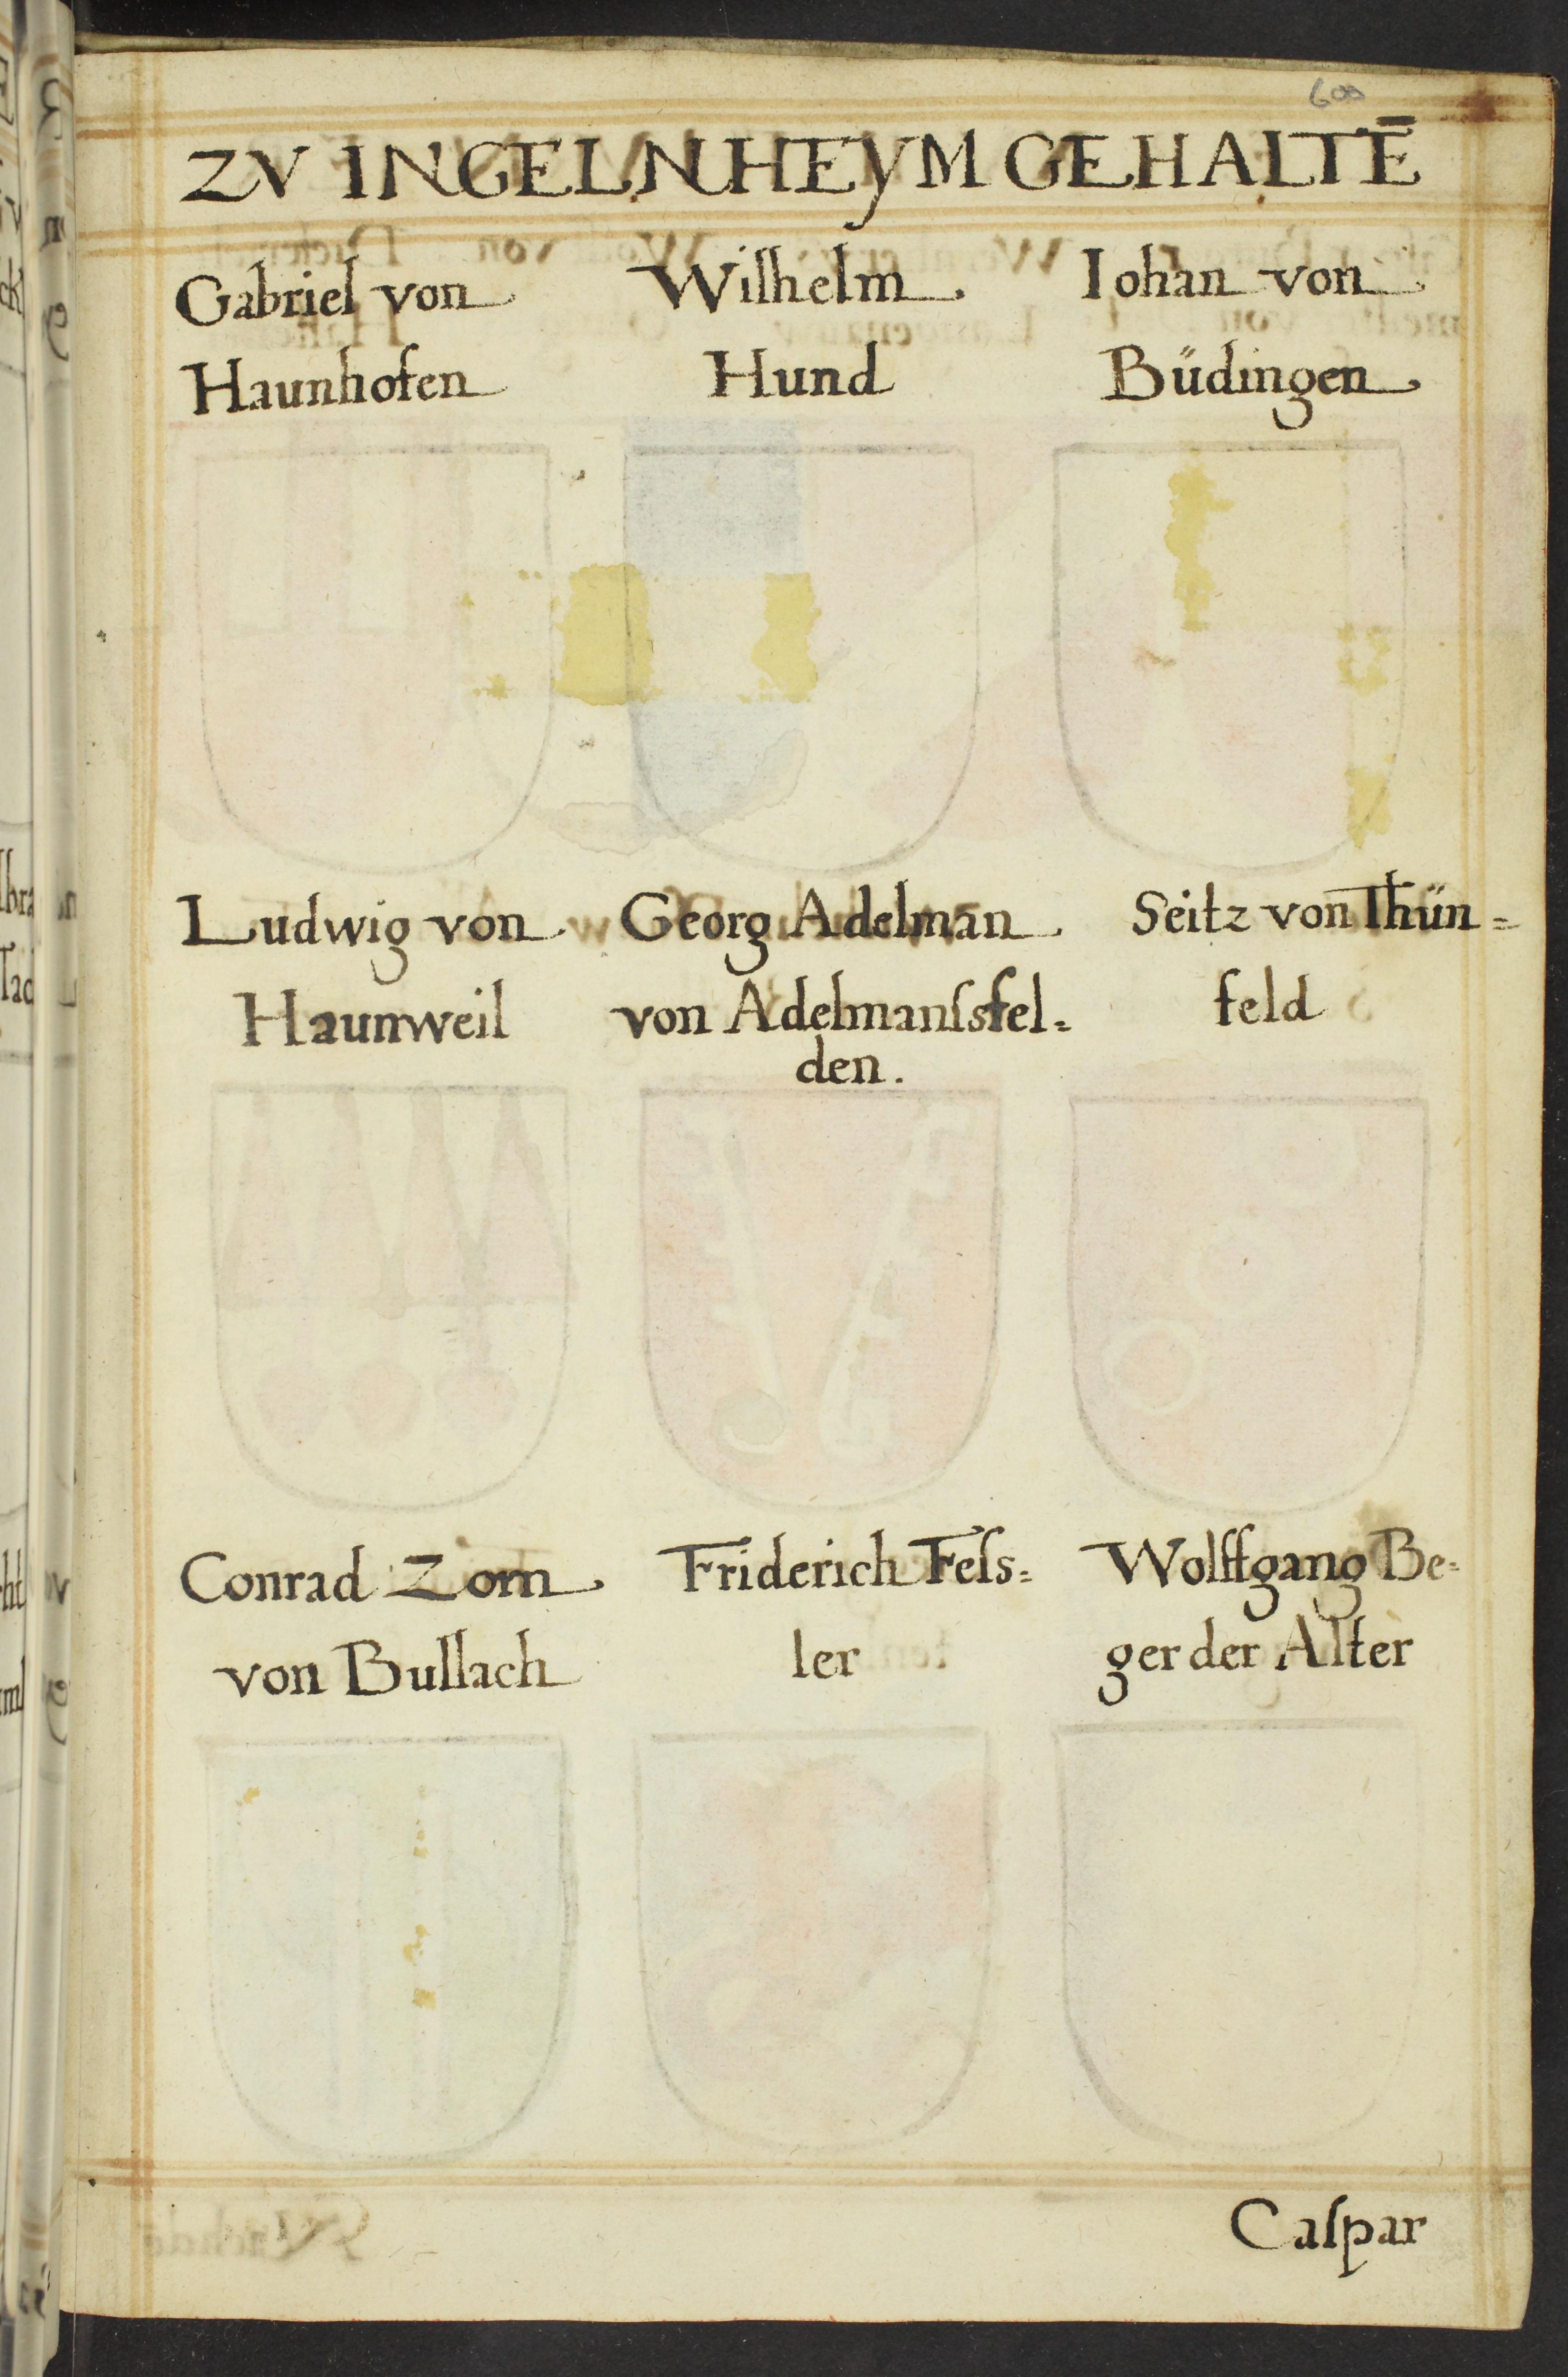 600
ZV INGELNHEYM GEHALTĒ
Gabriel von
Haunhofen
Wilhelm
Hund
Iohan von
Büdingen
Ludwig von
Haunweil
Georg Adelman
von Adelmanſsfel-
den.
Seitz von Thün-
feld
Conrad Zorn
von Bullach
Friderich Feſs-
ler
Wolffgang Be-
ger der Alter
Caſpar